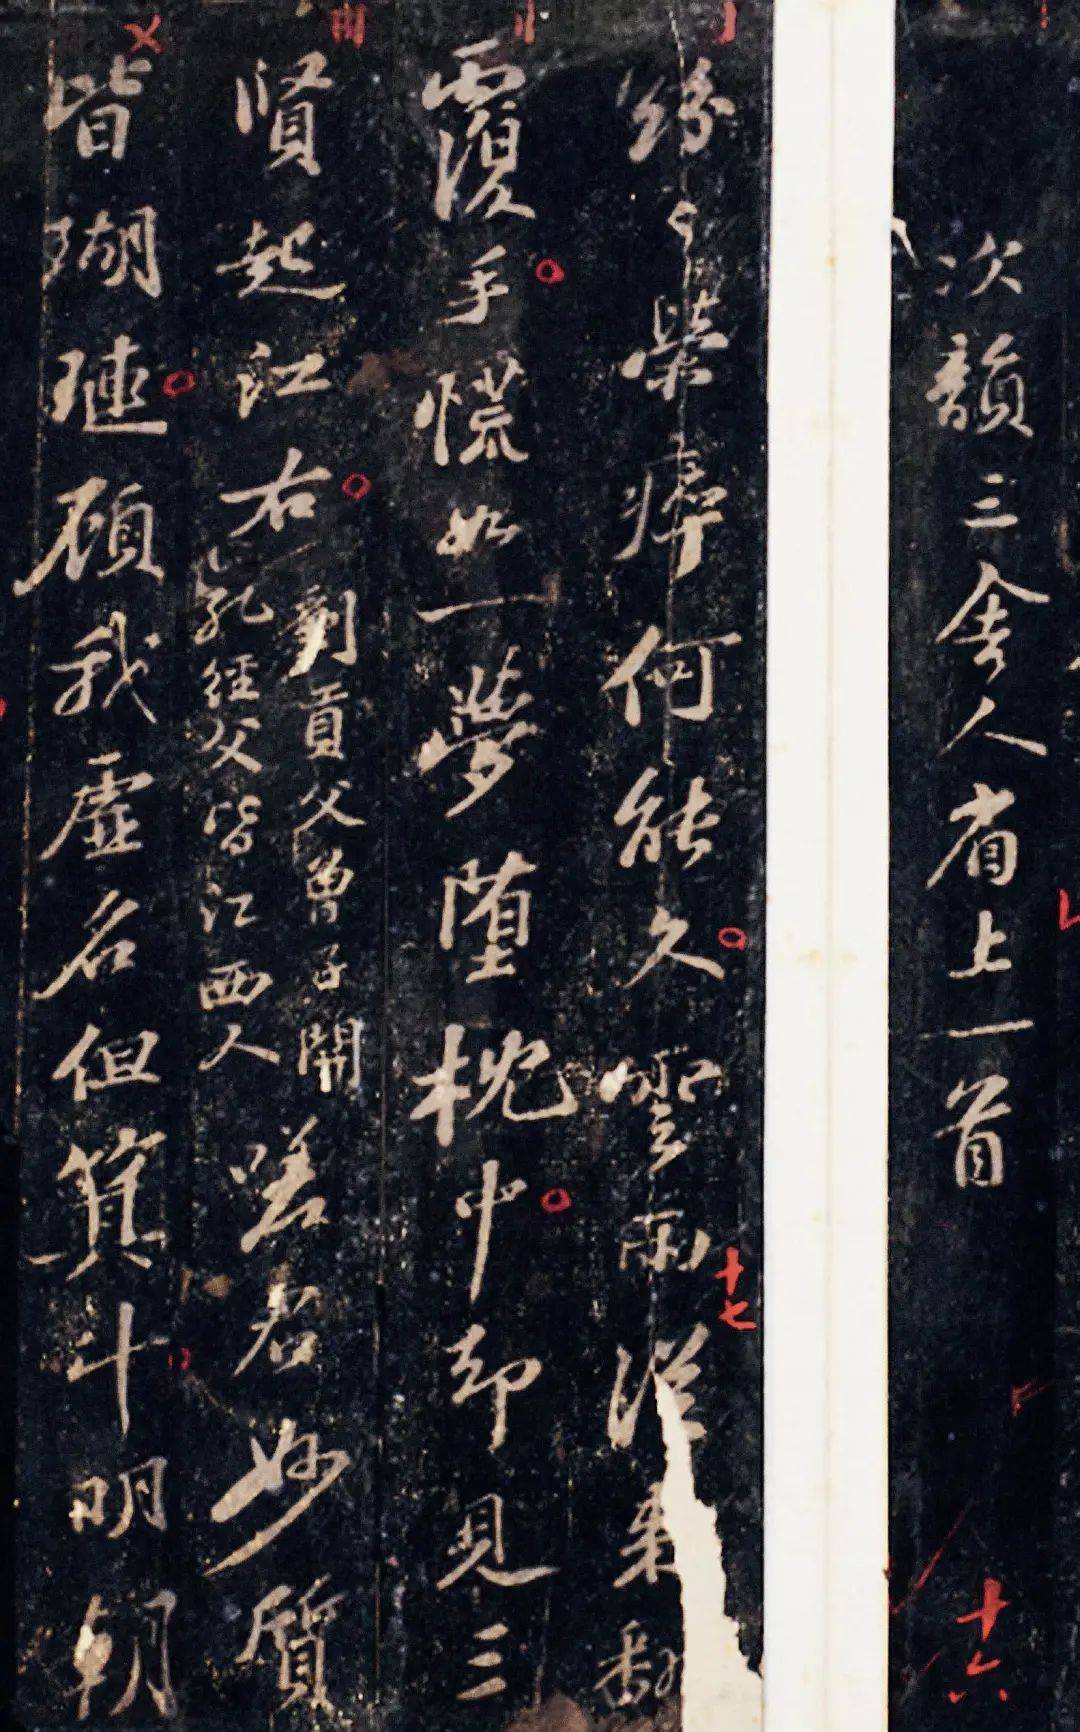 次韻三舍人省上一首
十六
紛〻榮瘁何能久雲雨從来翻
十七
覆手慌如一夢墮枕中却見三
賢起江右
劉貢父曾子開
孔經父皆江西人
嗟君妙質
皆瑚璉顧我虛名但箕斗明朝